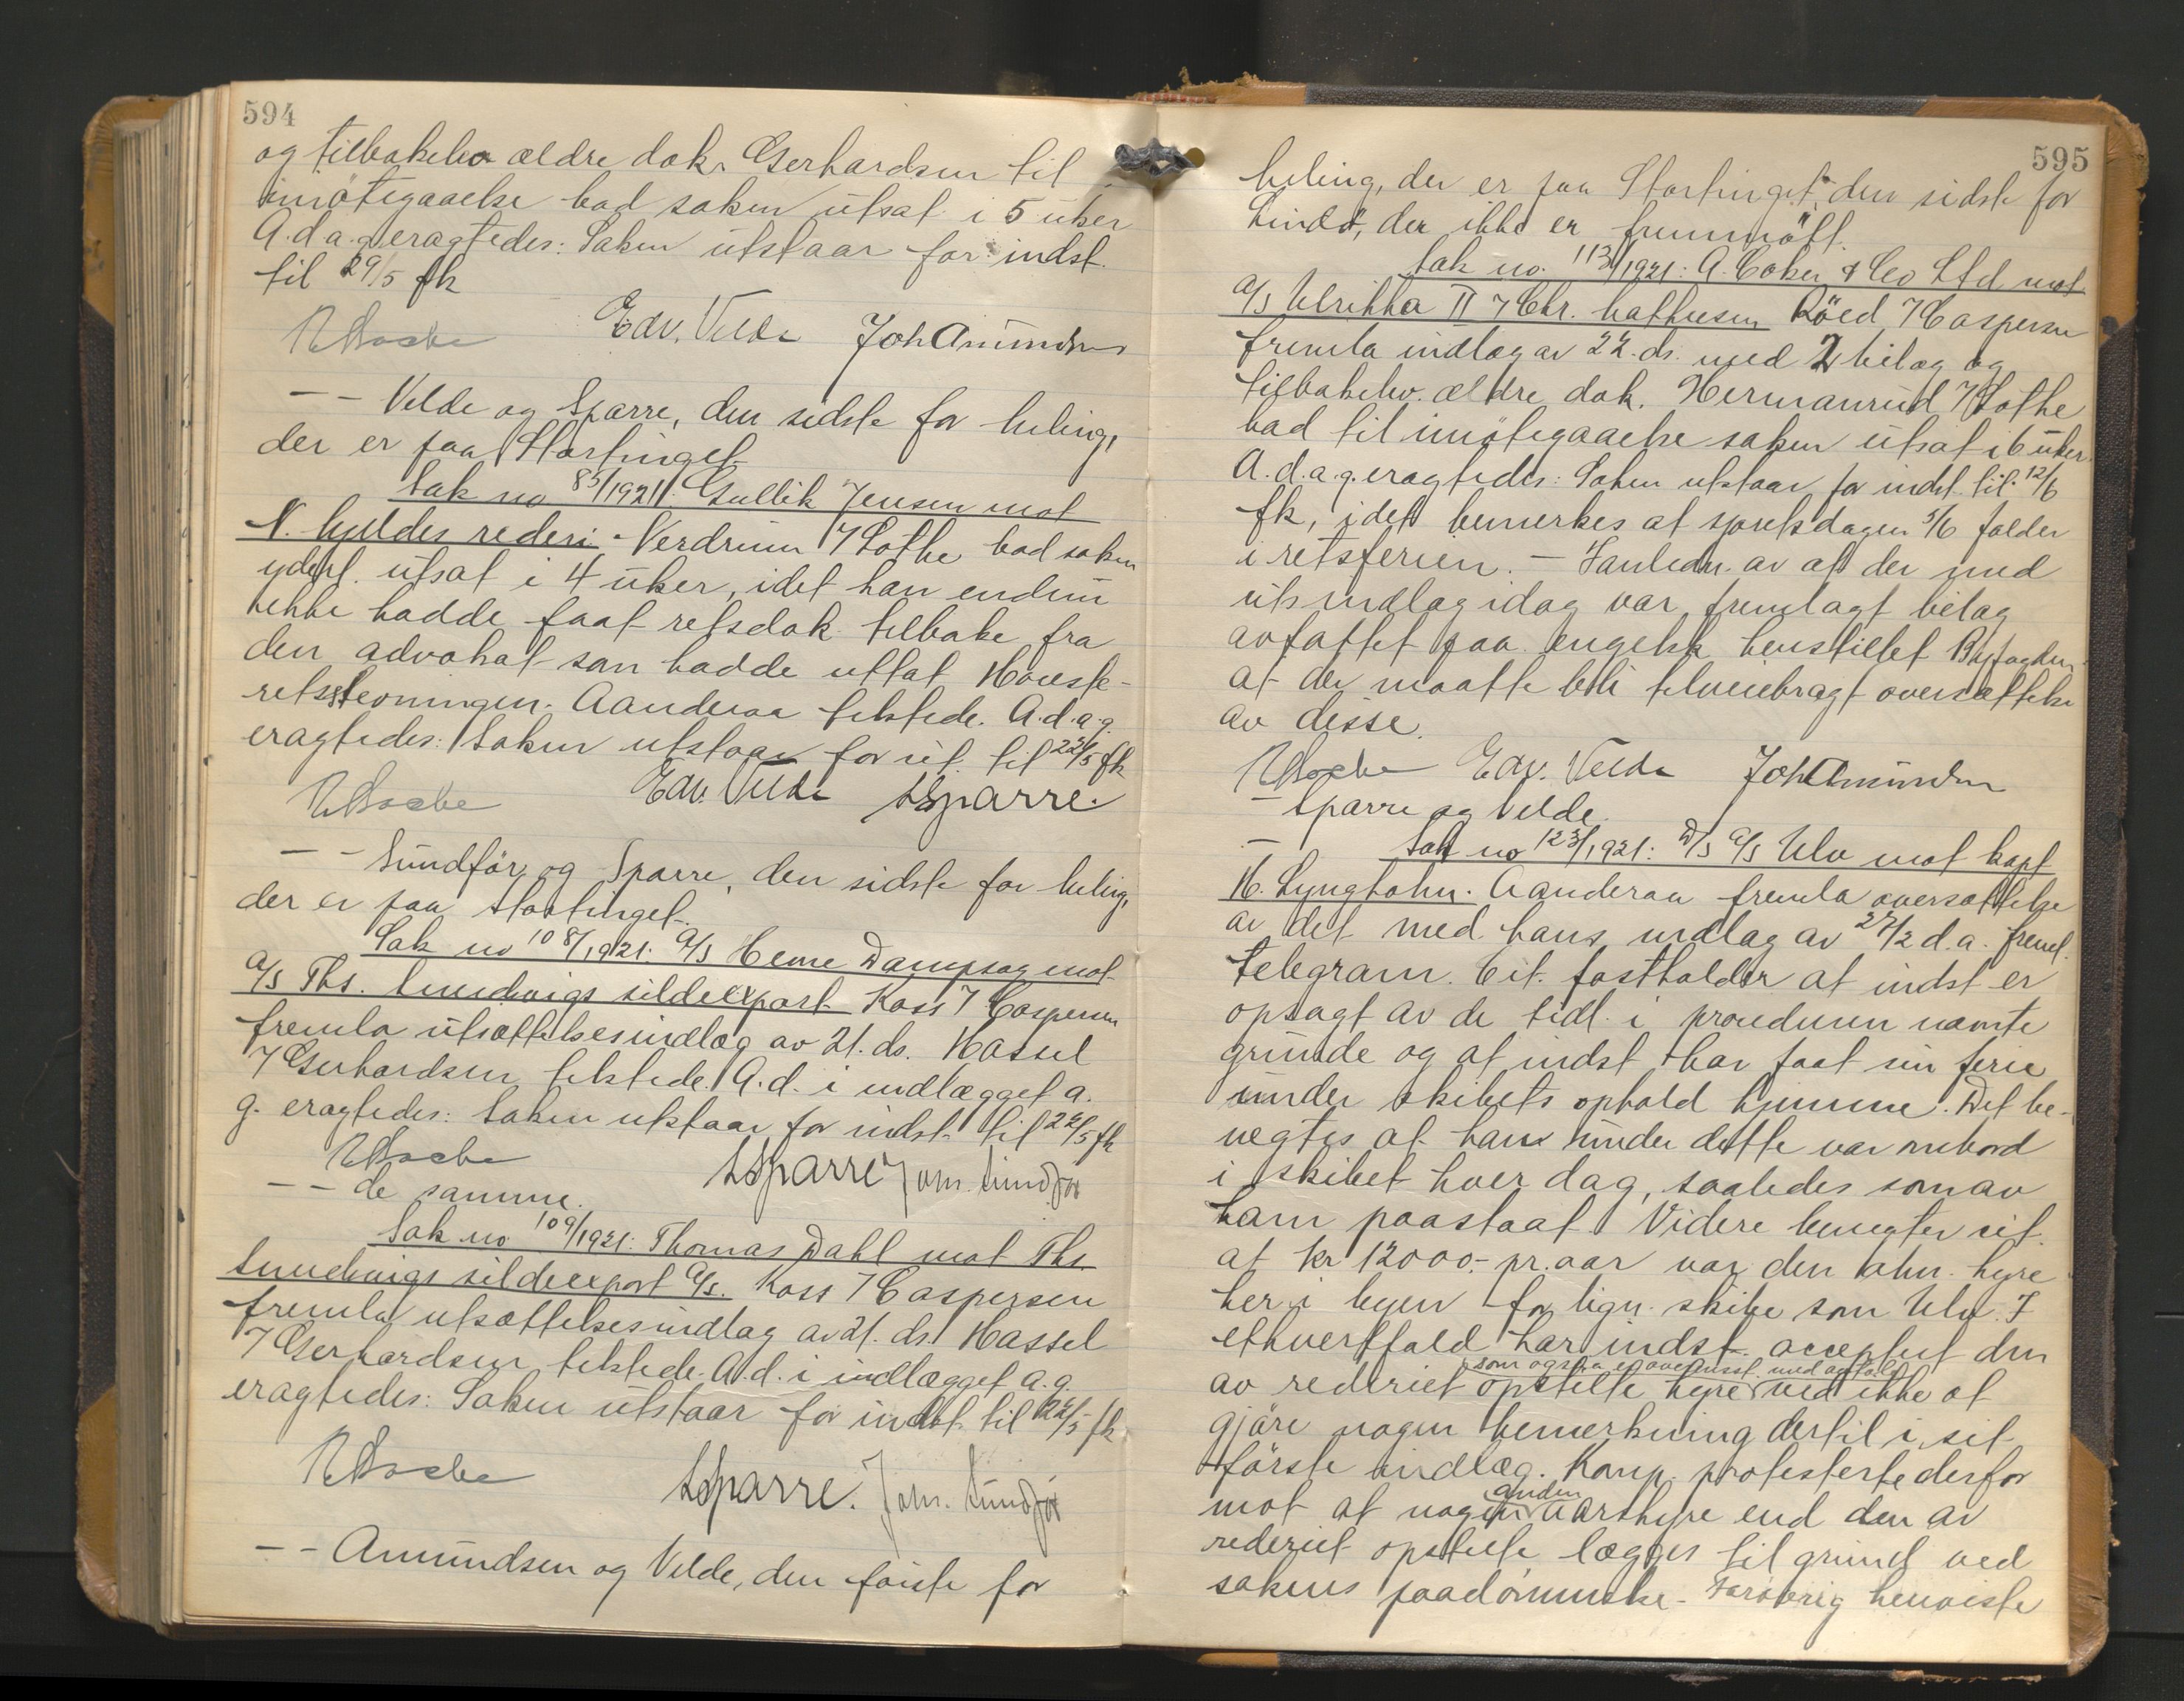 594
og tilbakelev ældre dok. Gerhardsen til
imøtegaaelse bad saken utsat i 5 uker
A.d.a.g. eragtedes: Saken utstaar for indst.
til 29/5 fk
Edv. Velde Joh Amundsen
-- Velde og Sparre, den sidste for
der er paa Stortinget
Sak no 85/1921: Gullik Jensen mot
N. Kyldes rederi. Verdrum / Lothe bad saken
yderl. utsat i 4 uker, idet han endnu
ikke hadde faat retsdok. tilbake fra
den advokat som hadde uttat Høieste-
retsstevningen. Aanderaa tilstede. A.d.a.g.
eragtedes: Saken utstaar for cit. til 22/5 fk
Edv. Velde Sparre.
-- Sundfør og Sparre, den sidste for
der er paa Stortinget.
Sak no 108/1921. A/S Hemne Dampsag mot
A/S Ths. sildeexport Koss / Caspersen
fremla utsættelsesindlæg av 21. ds. Hassel
/ Gerhardsen tilstede. A.d. i indlægget a.
g. eragtedes: Saken utstaar for indst. til 22/5 fk
Sparre Joh. Sundfør
-- de samme.
Sak no 109/1921: Thomas Dahl mot Ths.
sildeexport A/S. Koss / Caspersen
fremla utsættelsesindlæg av 21. ds. Hassel
/ Gerhardsen tilstede. A.d. i indlægget a.g.
eragtedes: Saken utstaar for indst. til 22/5 fk
Sparre. Johs. Sundfør
-- Amundsen og Velde, den første for
595
der er paa Stortinget, den sidste for
Lindø, der ikke er fremmøtt.
Sak no. 113/1921: A. Coker & Co Ltd. mot
A/S Ulrikka II / Chr. Røed / Caspersen
fremla indlæg av 22. ds. med 2 bilag og
tilbakelev. ældre dok. Hermanrud / Lothe
bad til imøtegaaelse saken utsat i 6 uker.
A.d.a.g. eragtedes: Saken utstaar for indst. til 12/6
fk, idet bemerkes at spørsdagen 5/6 falder
i retsferien. - I anledn. av at der med
cits indlæg idag var fremlagt bilag
avfattet paa engelsk henstillet Byfogden
at der maatte bli tilveiebragt oversættelse
av disse.
Edv. Velde Joh Amundsen
- Sparre og Velde.
- Sak no 123/1921: D/S A/S Ulv mot kapt
H. Lyngholm. Aanderaa fremla oversættelse
av det med hans indlæg av 27/2 d.a. freml.
telegram. Cit. fastholder at indst er
opsagt av de tidl. i proceduren nævnte
grunde og at indst har faat sin ferie
under skibets ophold hjemme. Det be-
negtes at han under dette var ombord
i skibet hver dag, saaledes som av
ham paastaat. Videre benegter cit.
at kr 12000.- pr. aar var den alm. hyre
her i byen for lign. skibe som Ulv. I
ethvertfald har indst. acceptert den
som ogsaa er overensst. med avtalen
av rederiet opstillte hyre ved ikke at
gjøre nogen bemerkning dertil i sit
første indlæg. Komp. protesterte derfor
anden
mot at nogen aarshyre end den av
rederiet opstilte lægges til grund ved
sakens paadømmelse. Forøvrig henviste